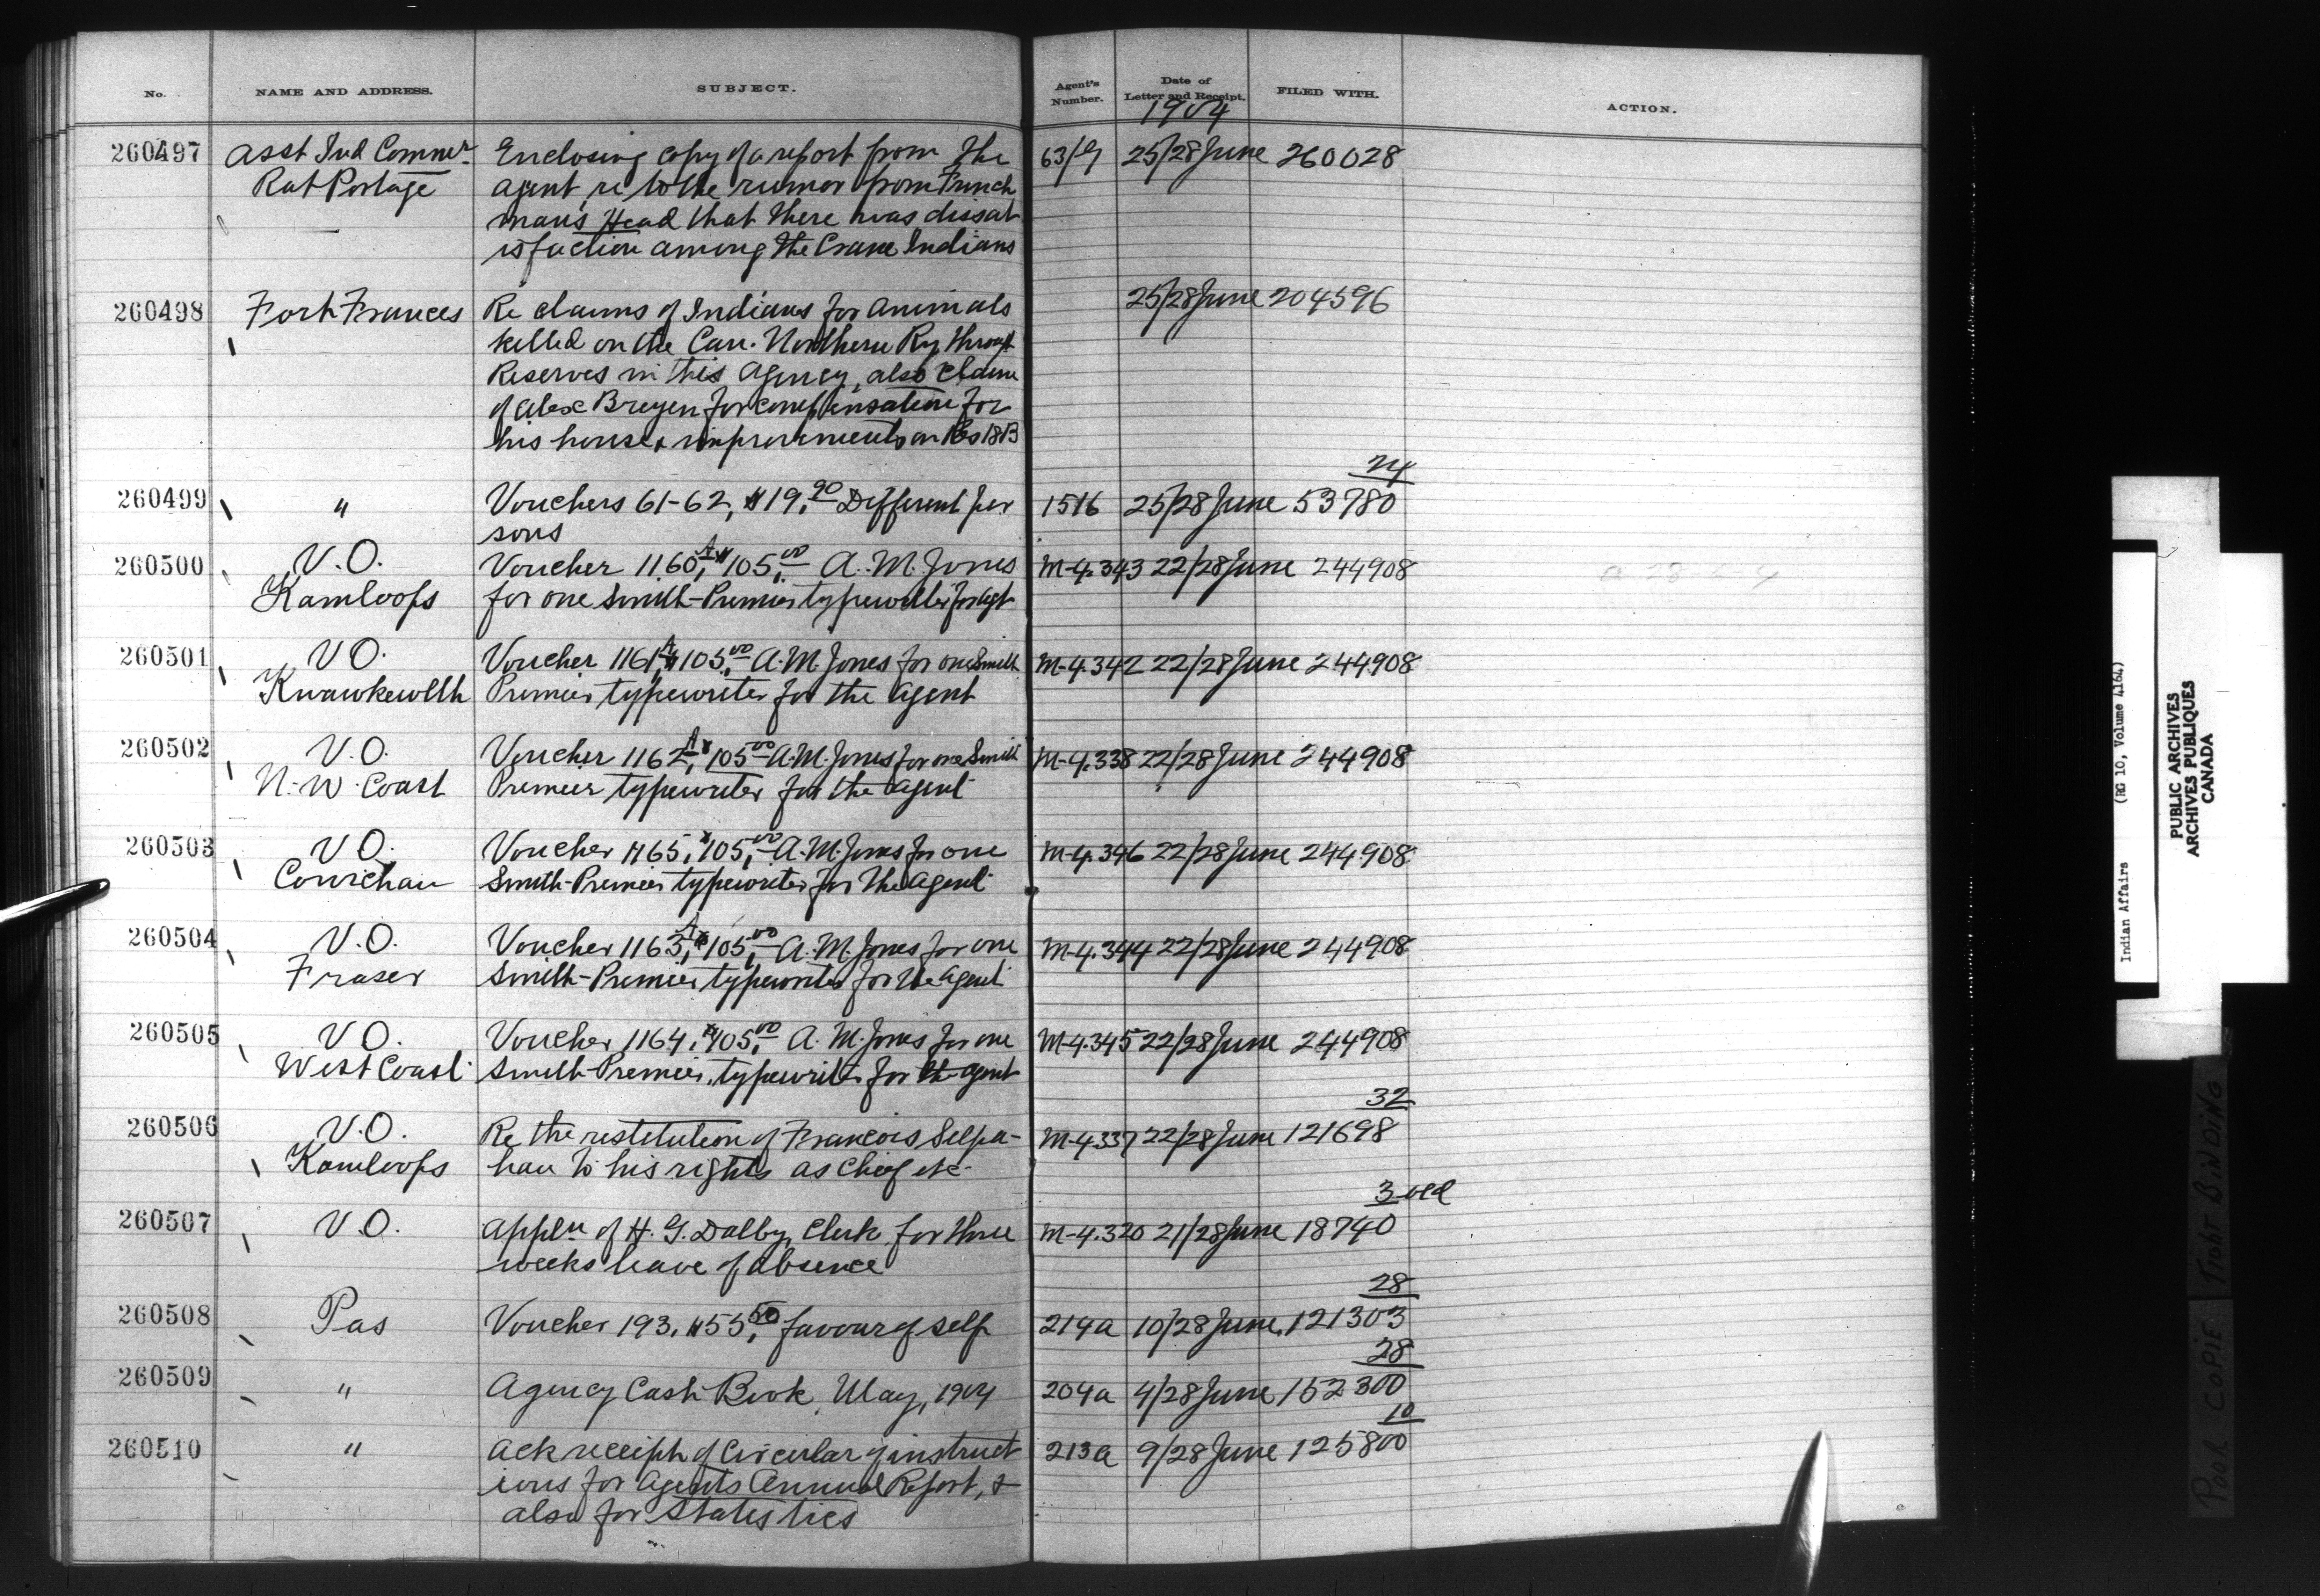 No. NAME AND ADDRESS. SUBJECT. Agent's Number. Date of Letter and Receipt. FILED WITH. ACTION.
1904
260497 Asst Ind Commr Enclosing copy of a report from the 63/9 25/28 June 260028
Rat Portage agent, re to the rumor from French
man's Head that there was dissat
isfaction among the Crane Indians
260498 Fort Frances Re claims of Indians for animals 25/28 June 204596
killed on the Can. Northern Ry. through
Reserves in this Agency, also claim
of Alex for compensation for
his house & improvements on Res 18B
24
260499 " Vouchers 61-62, $19.90 Different per 1516 25/28 June 53780
sons
260500 V.O. Voucher 1160A, $105.00 A.M. Jones M-4.343 22/28 June 244908
Kamloops for one Smith-Premier typewriter for agt
260501 V.O. Voucher 1161A, $105.00 A.M. Jones for one Smith M-4.342 22/28 June 244908
Kwawkewlth Premier typewriter for the agent
260502 V.O. Voucher 1162A, $105.00 A.M. Jones for one Smith M-4.338 22/28 June 244908
N.W. Coast Premier typewriter for the agent
260503 V.O. Voucher 1165, $105.00 A.M. Jones for one M-4.346 22/28 June 244908
Cowichan Smith-Premier typewriter for the agent
260504 V.O. Voucher 1163A, $105.00 A.M. Jones for one M-4.344 22/28 June 244908
Fraser Smith-Premier typewriter for the agent
260505 V.O. Voucher 1164, $105.00 A.M. Jones for one M-4.345 22/28 June 244908
West Coast Smith-Premier typewriter for the agent
32
260506 V.O. Re the restitution of Francois Selpa- M-4.337 22/28 June 121698
Kamloops han to his rights as Chief etc
3 ved
260507 V.O. Appln of H. G. Dalby, Clerk for three M-4.320 21/28 June 18740
weeks leave of absence
28
260508 Pas Voucher 193, $55.50 favour of self 214a 10/28 June 121303
28
260509 " Agency Cash Book, May, 1904 204a 4/28 June 152300
10
260510 " Ack receipt of Circular of instruct 213a 9/28 June 125800
ions for Agents Annual Report, &
also for Statistics
Indian Affairs (RG 10, Volume 4164)
PUBLIC ARCHIVES
ARCHIVES PUBLIQUES
CANADA
POOR COPIE TIGHT BINDING